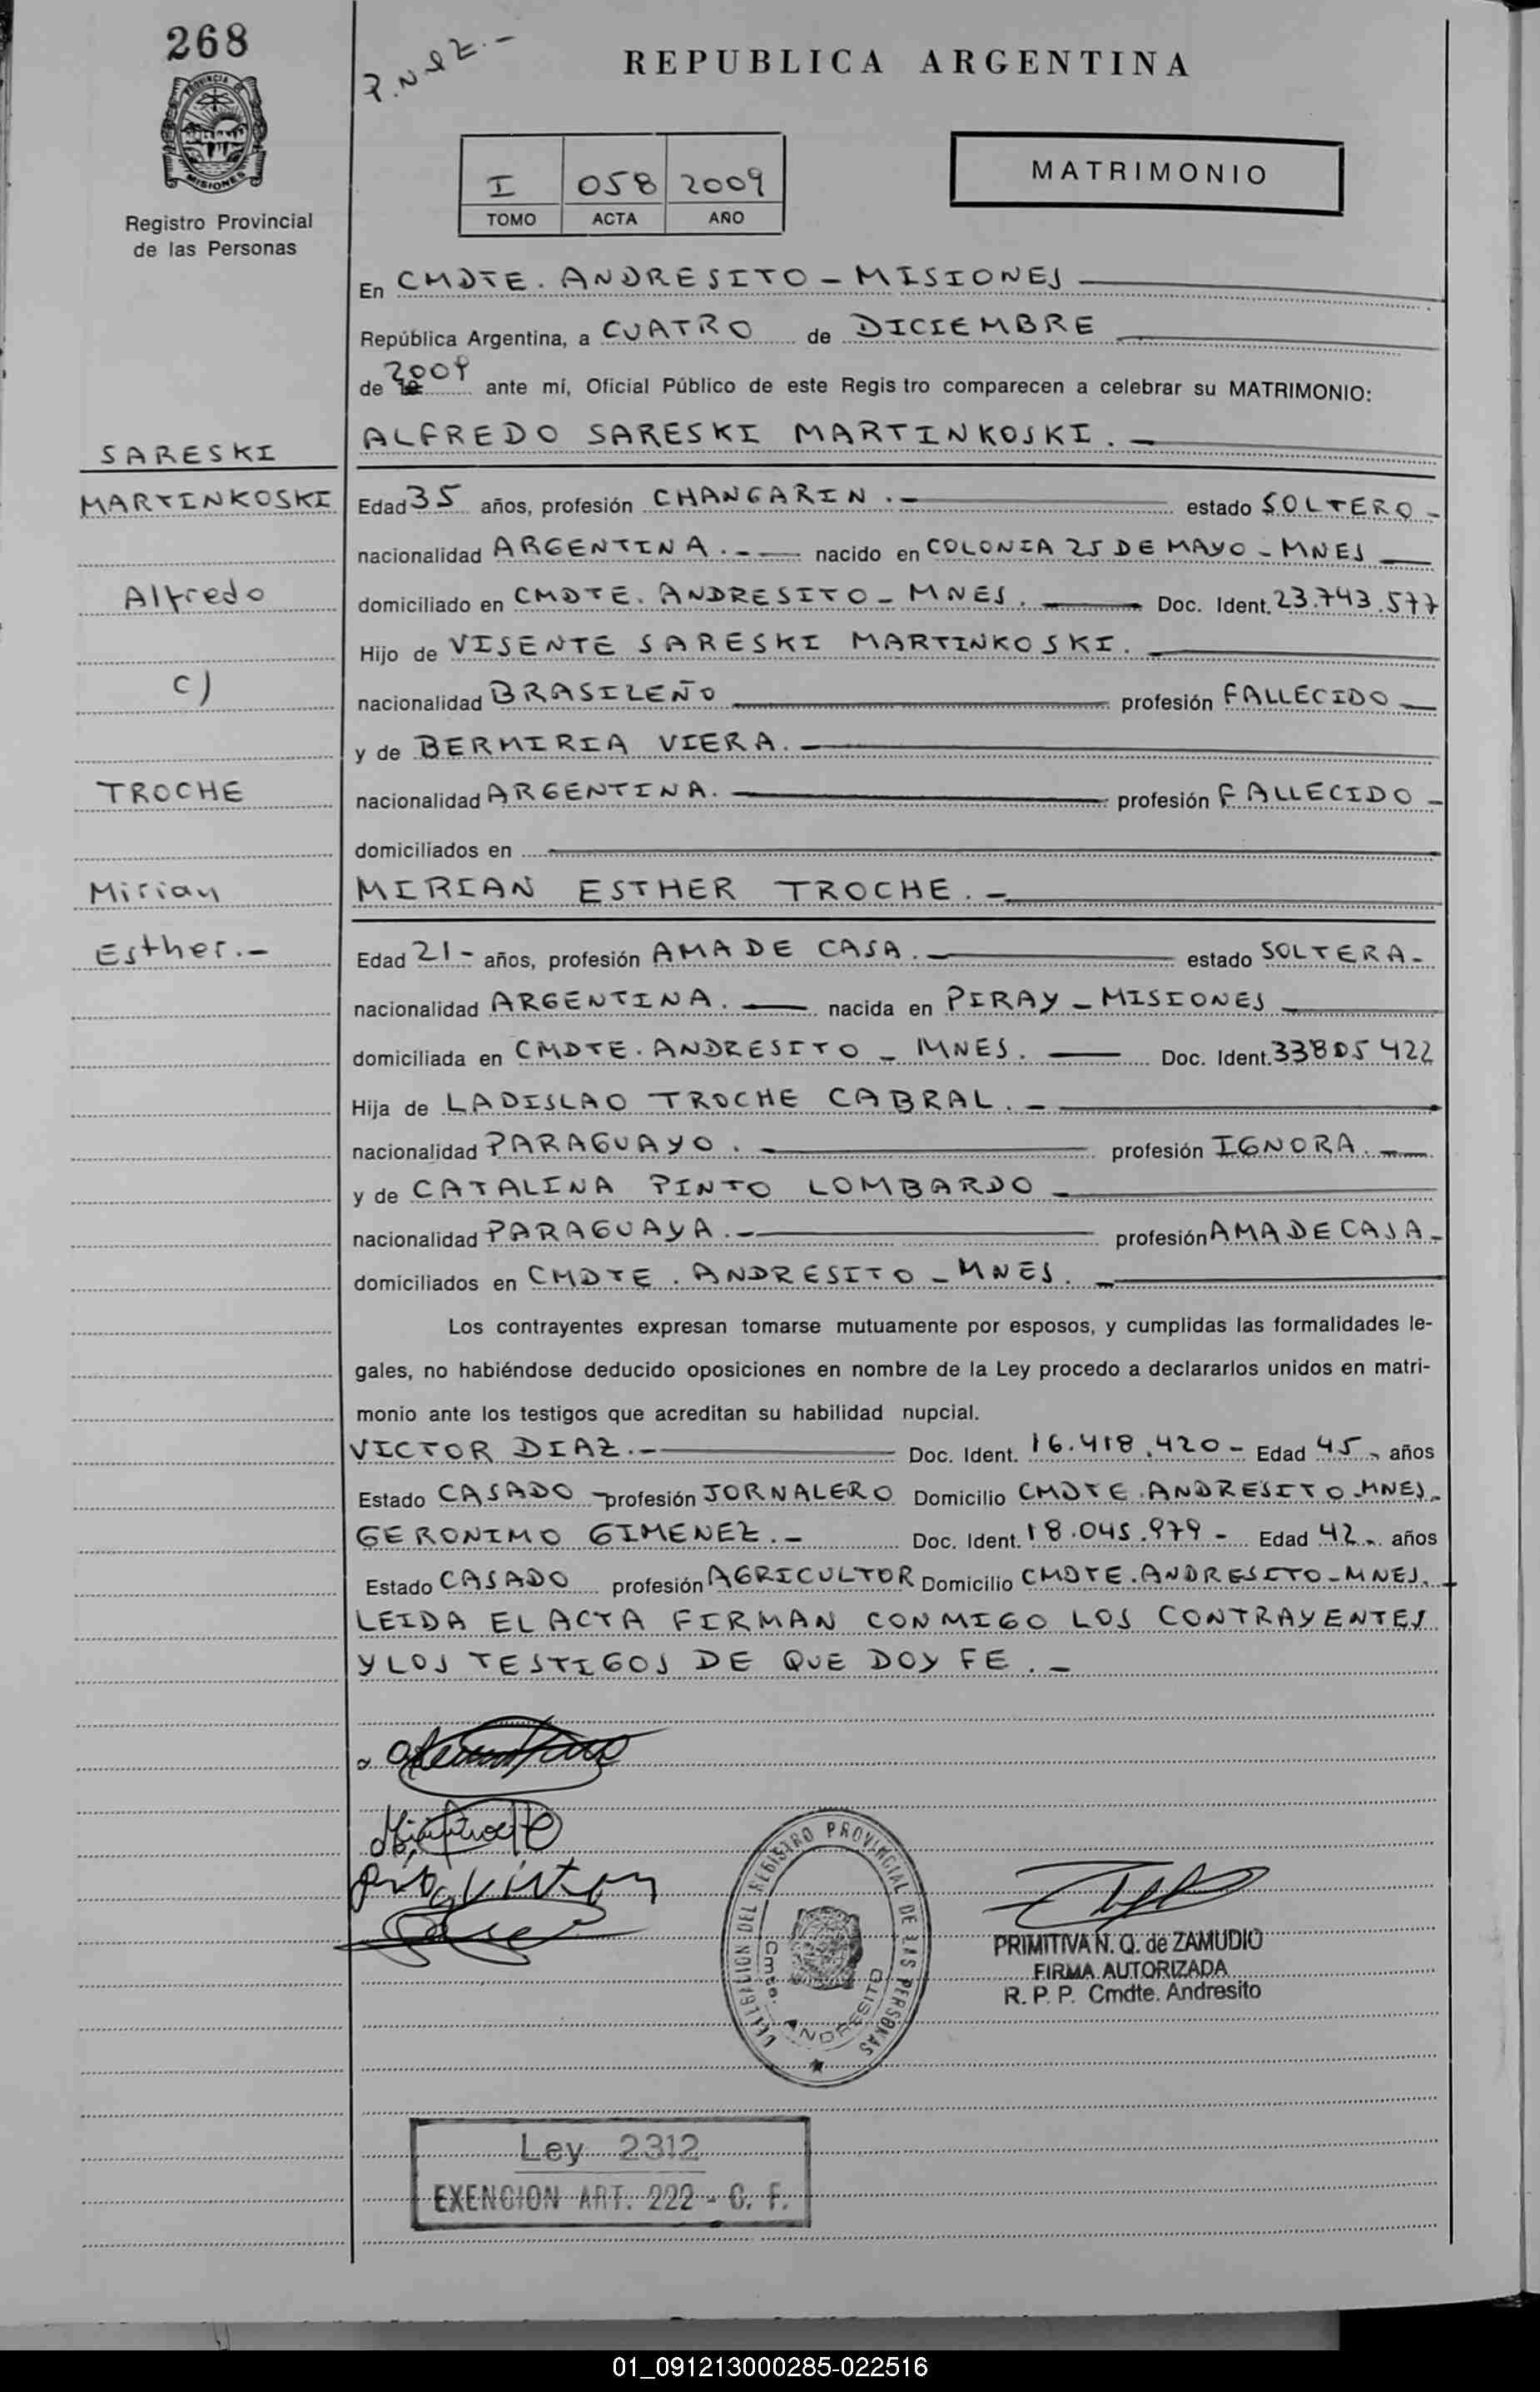 268
P. N° 2.-
REPUBLICA ARGENTINA
PROVINCIA DE
MISIONES
Registro Provincial
de las Personas
I 058 2009
TOMO ACTA AÑO
MATRIMONIO
En CMDTE. ANDRESITO - MISIONES
República Argentina, a CUATRO de DICIEMBRE
de 2009 ante mí, Oficial Público de este Regis tro comparecen a celebrar su MATRIMONIO:
ALFREDO SARESKI MARTINKOSKI.-
SARESKI
MARTINKOSKI
Alfredo
c)
TROCHE
Mirian
Esther.-
Edad 35 años, profesión CHANGARIN.- estado SOLTERO-
nacionalidad ARGENTINA.- nacido en COLONIA 25 DE MAYO - MNES
domiciliado en CMDTE. ANDRESITO - MNES. Doc. Ident. 23.743.577
Hijo de VISENTE SARESKI MARTINKOSKI.
nacionalidad BRASILEÑO profesión FALLECIDO
y de BERMIRIA VIERA.-
nacionalidad ARGENTINA. profesión FALLECIDO-
domiciliados en
MIRIAN ESTHER TROCHE.-
Edad 21- años, profesión AMA DE CASA.- estado SOLTERA-
nacionalidad ARGENTINA. nacida en PIRAY - MISIONES
domiciliada en CMDTE. ANDRESITO - MNES. Doc. Ident. 33805422
Hija de LADISLAO TROCHE CABRAL.-
nacionalidad PARAGUAYO. profesión IGNORA.
y de CATALINA PINTO LOMBARDO
nacionalidad PARAGUAYA.- profesión AMA DE CASA-
domiciliados en CMDTE. ANDRESITO - MNES.
Los contrayentes expresan tomarse mutuamente por esposos, y cumplidas las formalidades le-
gales, no habiéndose deducido oposiciones en nombre de la Ley procedo a declararlos unidos en matri-
monio ante los testigos que acreditan su habilidad nupcial.
VICTOR DIAZ.- Doc. Ident. 16.418.420- Edad 45- años
Estado CASADO - profesión JORNALERO Domicilio CMDTE. ANDRESITO-MNES.
GERONIMO GIMENEZ.- Doc. Ident. 18.045.979- Edad 42- años
Estado CASADO profesión AGRICULTOR Domicilio CMDTE. ANDRESITO-MNES.
LEIDA EL ACTA FIRMAN CONMIGO LOS CONTRAYENTES
Y LOS TESTIGOS DE QUE DOY FE.-
DELEGACION DEL REGISTRO PROVINCIAL DE LAS PERSONAS
Cmte. ANDRESITO
PRIMITIVA N. Q. de ZAMUDIO
FIRMA AUTORIZADA
R. P. P. Cmdte. Andresito
Ley 2312
EXENCION ART. 222 - C. F.
01_091213000285-022516